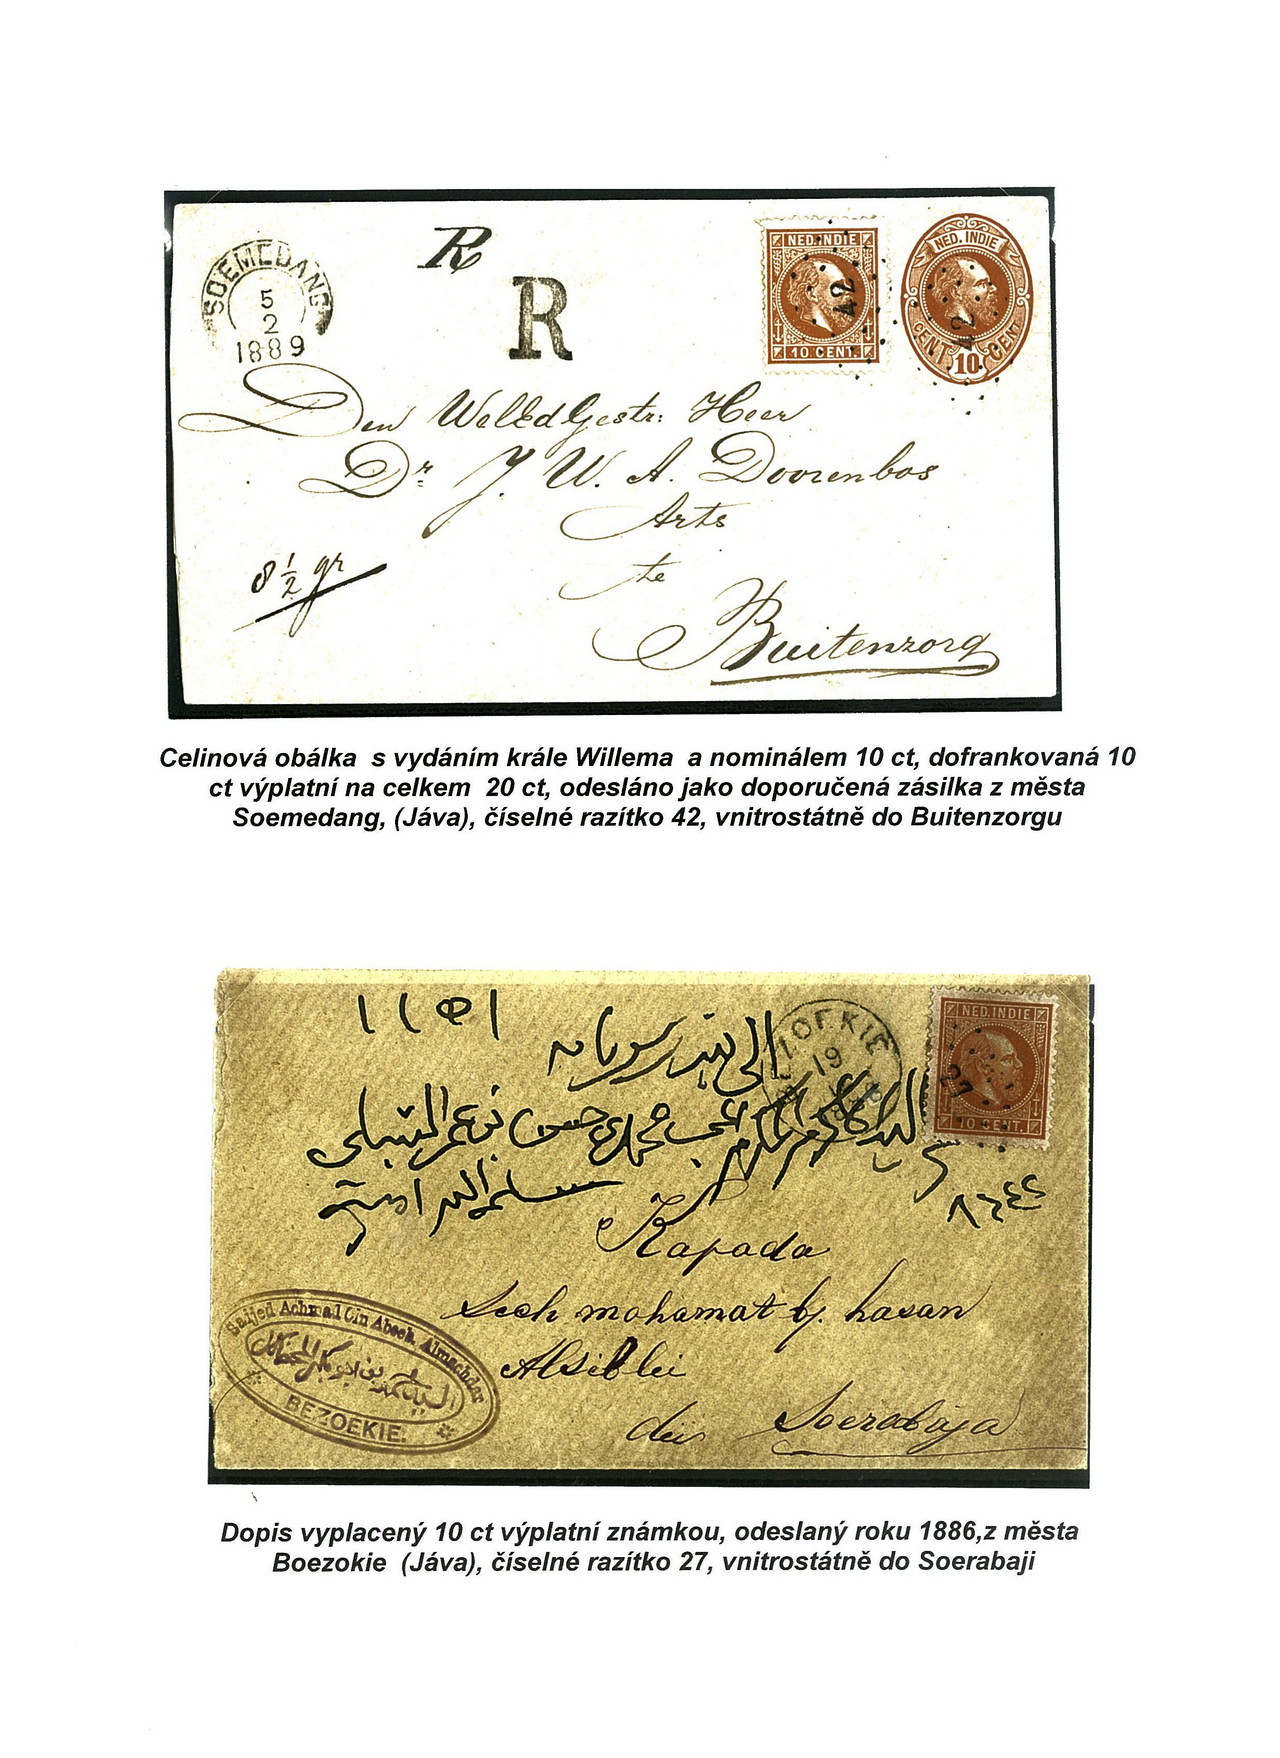 SOEMEDANG
5
2
1889
R
R
NED. INDIE
42
10 CENT.
NED. INDIE
42
CENT 10 CENT
Den WelEdGestr: Heer
Dr. J. W. A. Doorenbos
Arts
te
8 1/2 gr
Buitenzorg
Celinová obálka s vydáním krále Willema a nominálem 10 ct, dofrankovaná 10
ct výplatní na celkem 20 ct, odesláno jako doporučená zásilka z města
Soemedang, (Jáva), číselné razítko 42, vnitrostátně do Buitenzorgu
NED. INDIE
27
10 CENT.
19
الى بندر سوربايه
٨٦٤٤٢
Kapada
Sech mohamat b. hasan
Alsiblei
Soerabaja
Saijed Achmad bin Aboeb. Almachdar
BEZOEKIE.
Dopis vyplacený 10 ct výplatní známkou, odeslaný roku 1886,z města
Boezokie (Jáva), číselné razítko 27, vnitrostátně do Soerabaji